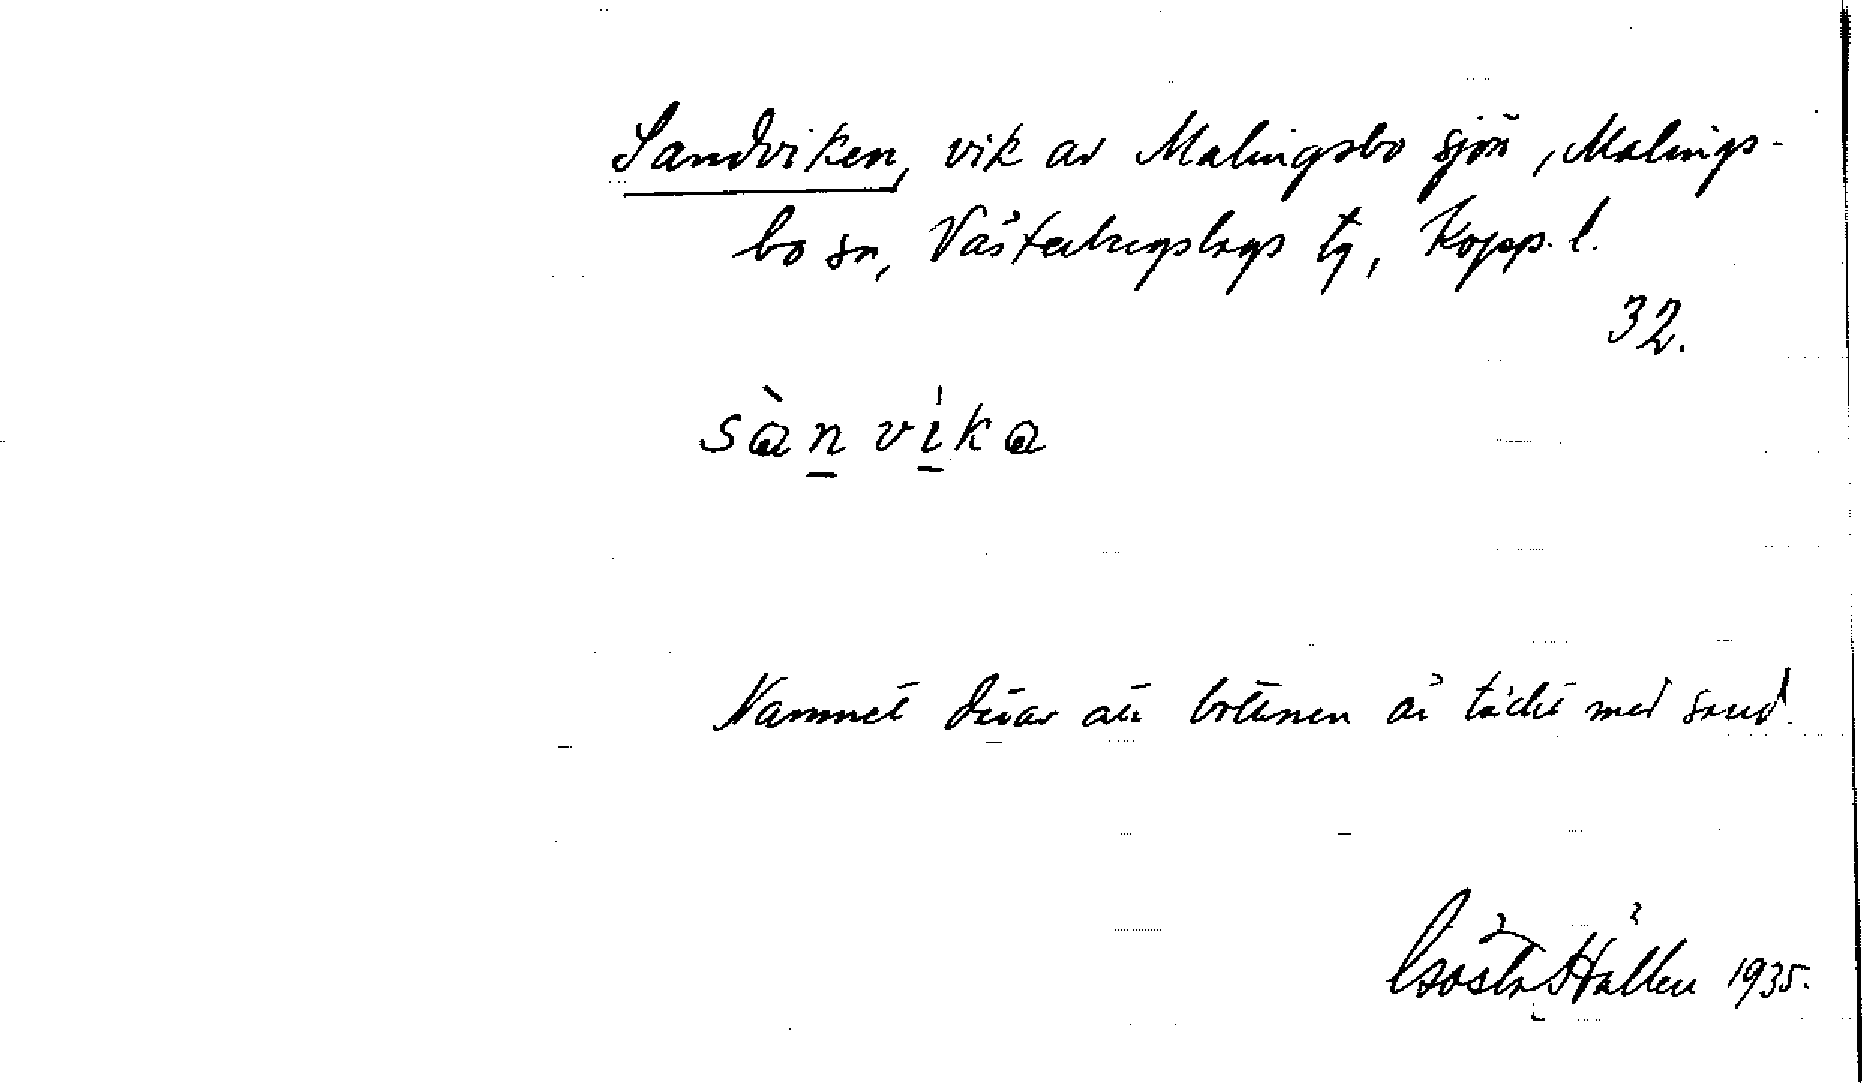 Sandviken, vik av Malingsbo sjön, Malings-
bo sn, Västerbergslags tg, Kopp. l.
32.
sàn vi̇ka
Namnet därav att bottnen är täckt med sand.
Gösta Hållen 1935.